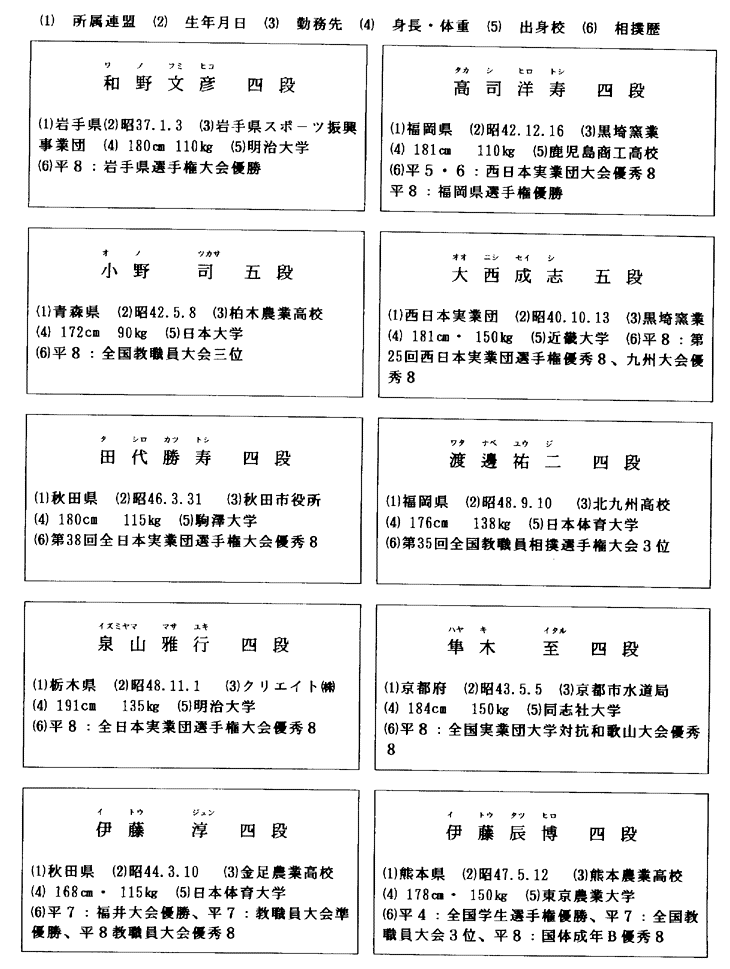 (1) 所属連盟 (2) 生年月日 (3) 勤務先 (4) 身長・体重 (5) 出身校 (6) 相撲歴
ワ ノ フミ ヒコ
和野文彦 四段
(1)岩手県(2)昭37.1.3 (3)岩手県スポーツ振興
事業団 (4) 180cm 110kg (5)明治大学
(6)平8：岩手県選手権大会優勝
タカ シ ヒロ トシ
高司洋寿 四段
(1)福岡県 (2)昭42.12.16 (3)黒埼窯業
(4) 181cm 110kg (5)鹿児島商工高校
(6)平5・6：西日本実業団大会優秀8
平8：福岡県選手権優勝
オ ノ ツカサ
小野 司 五段
(1)青森県 (2)昭42.5.8 (3)柏木農業高校
(4) 172cm 90kg (5)日本大学
(6)平8：全国教職員大会三位
オオ ニシ セイ シ
大西成志 五段
(1)西日本実業団 (2)昭40.10.13 (3)黒埼窯業
(4) 181cm・ 150kg (5)近畿大学 (6)平8：第
25回西日本実業団選手権優秀8、九州大会優
秀8
タ シロ カツ トシ
田代勝寿 四段
(1)秋田県 (2)昭46.3.31 (3)秋田市役所
(4) 180cm 115kg (5)駒澤大学
(6)第38回全日本実業団選手権大会優秀8
ワタ ナベ ユウ ジ
渡邊祐二 四段
(1)福岡県 (2)昭48.9.10 (3)北九州高校
(4) 176cm 138kg (5)日本体育大学
(6)第35回全国教職員相撲選手権大会3位
イズミヤマ マサ ユキ
泉山雅行 四段
(1)栃木県 (2)昭48.11.1 (3)クリエイト㈱
(4) 191cm 135kg (5)明治大学
(6)平8：全日本実業団選手権大会優秀8
ハヤ キ イタル
隼木 至 四段
(1)京都府 (2)昭43.5.5 (3)京都市水道局
(4) 184cm 150kg (5)同志社大学
(6)平8：全国実業団大学対抗和歌山大会優秀
8
イ トウ ジュン
伊藤 淳 四段
(1)秋田県 (2)昭44.3.10 (3)金足農業高校
(4) 168cm・ 115kg (5)日本体育大学
(6)平7：福井大会優勝、平7：教職員大会準
優勝、平8教職員大会優秀8
イ トウ タツ ヒロ
伊藤辰博 四段
(1)熊本県 (2)昭47.5.12 (3)熊本農業高校
(4) 178cm・ 150kg (5)東京農業大学
(6)平4：全国学生選手権優勝、平7：全国教
職員大会3位、平8：国体成年B優秀8